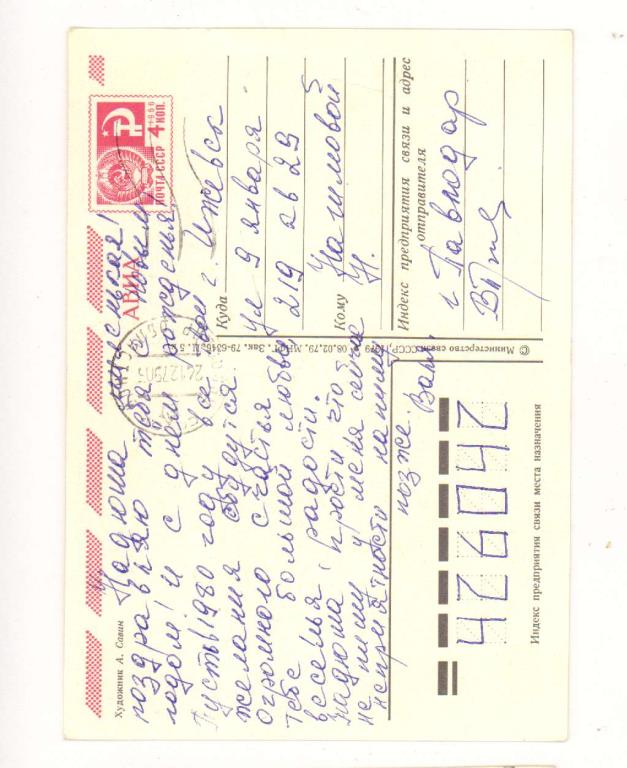 Художник А. Савин
Надюша милая!
поздравляю тебя с новым
годом! и с днем рожденья.
Пусть 1980 году все твои
желания сбудутся
огромного счастья
тебе большой любви
веселья, радости.
Надюша, прости что
не пишу у меня сейчас
неприятности напишу
позже. Валя.
АВИА
1966
4 КОП.
ПОЧТА СССР
24127901
Куда
г. Ижевск
ул 9 января
219 кв 29
Кому
Нагимовой
Н.
Индекс предприятия связи и адрес
отправителя
г. Павлодар
© Министерство связи СССР, 1979
08.02.79.
Зак. 79-6346
426042
Индекс предприятия связи места назначения